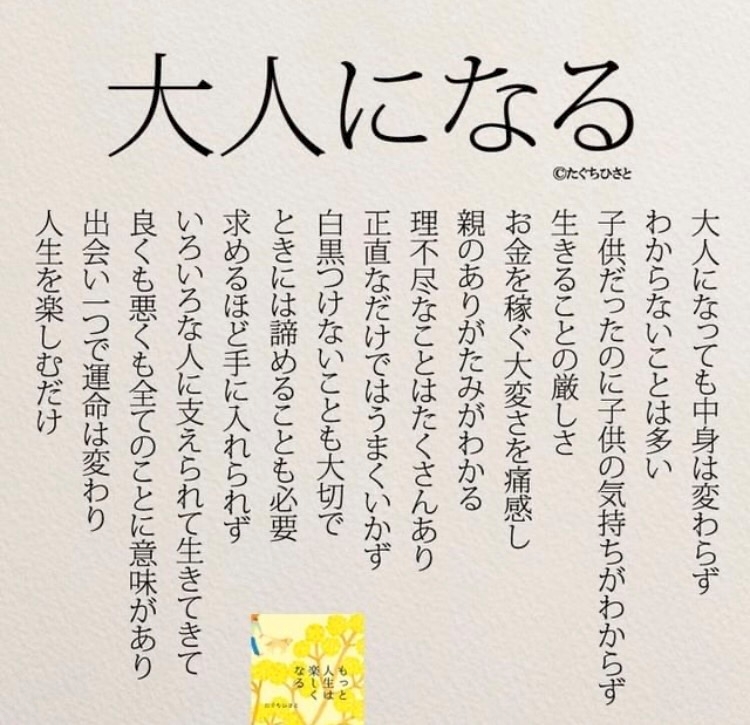 大人になる
©たぐちひさと
大人になっても中身は変わらず
わからないことは多い
子供だったのに子供の気持ちがわからず
生きることの厳しさ
お金を稼ぐ大変さを痛感し
親のありがたみがわかる
理不尽なことはたくさんあり
正直なだけではうまくいかず
白黒つけないことも大切で
ときには諦めることも必要
求めるほど手に入れられず
いろいろな人に支えられて生きてきて
良くも悪くも全てのことに意味があり
出会い一つで運命は変わり
人生を楽しむだけ
もっと
人生は
楽しく
なる
たぐちひさと